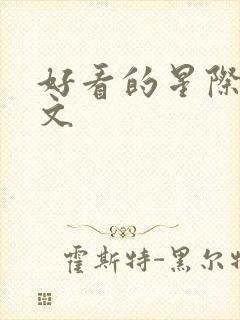 好看的星际
文
霍斯特-黑尔特